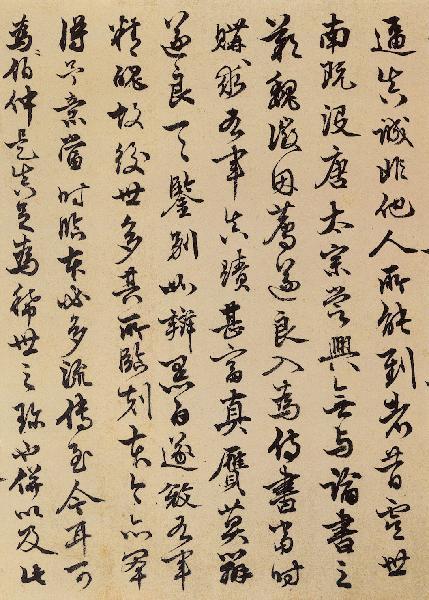 逼真誠非他人所能到者昔虞世
南既沒唐太宗嘗興無與論書之
歎魏徵因薦遂良入為侍書當時
購求右軍真蹟甚富真贋莫辨
遂良一一鑒別如辨黑白遂右軍
精醜故後世多其所臨刻本今亦罕
得予意當時臨本必多流傳至今耳可
為伯仲是真足為稀世之珍也併以及此